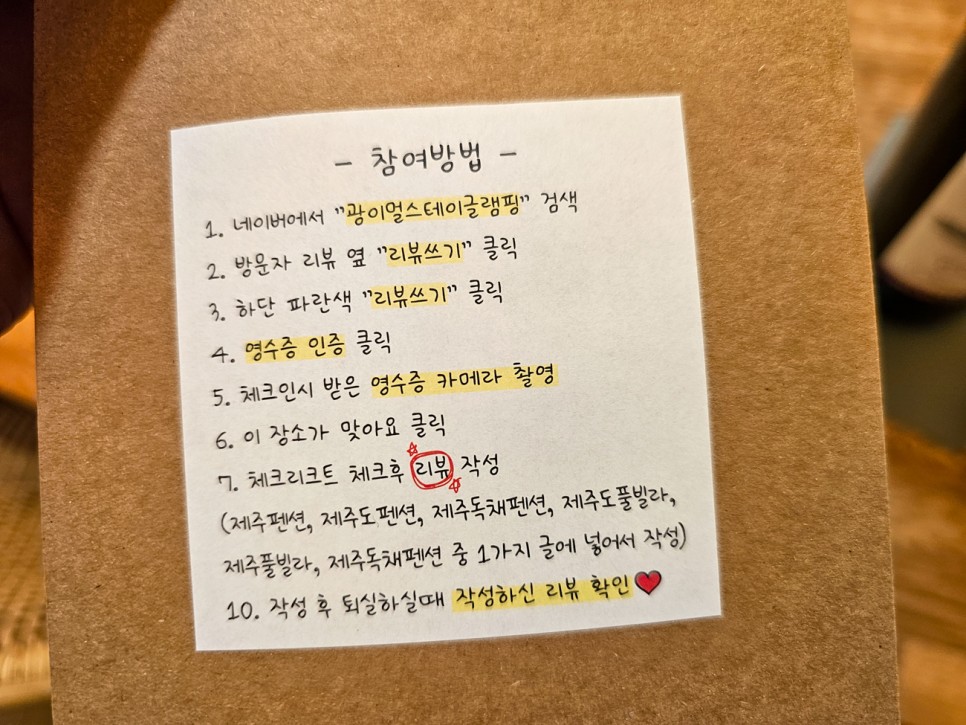 - 참여방법 -
1. 네이버에서 "광이멀스테이글램핑" 검색
2. 방문자 리뷰 옆 "리뷰쓰기" 클릭
3. 하단 파란색 "리뷰쓰기" 클릭
4. 영수증 인증 클릭
5. 체크인시 받은 영수증 카메라 촬영
6. 이 장소가 맞아요 클릭
7. 체크리크트 체크후 리뷰 작성
(제주펜션, 제주도펜션, 제주독채펜션, 제주도풀빌라,
제주풀빌라, 제주독채펜션 중 1가지 글에 넣어서 작성)
10. 작성 후 퇴실하실때 작성하신 리뷰 확인♥